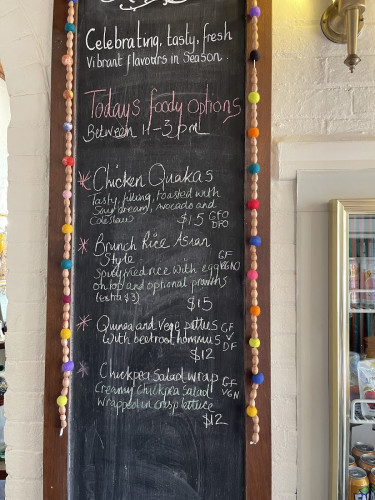 Celebrating, tasty, fresh
Vibrant flavours in Season.
Todays foody options
Between 11-3pm
* Chicken Quakas
Tasty, filling, toasted with
Sour cream, Avocado and
Coleslaw $15 GFO
DFO
* Brunch Rice Asian
Style GF
Spicy fried rice with egg
on top and optional prawns
(extra $3)
$15
* Quinoa and Vege patties GF
With beetroot hommus V
$12 DF
* Chickpea Salad wrap GF
Creamy chickpea Salad VGN
Wrapped in crisp lettuce
$12